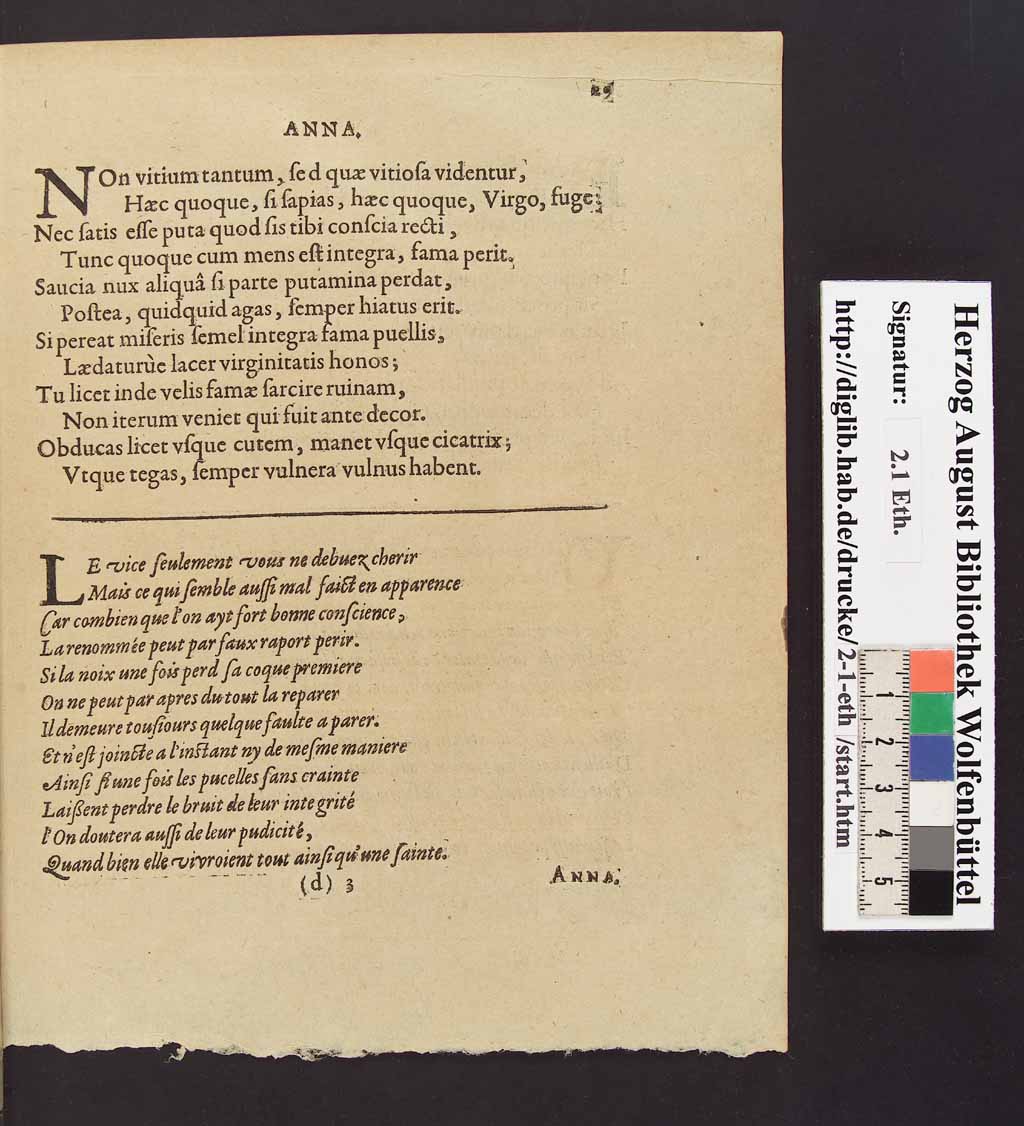 29
ANNA.
NOn vitium tantum, ſed quæ vitioſa videntur,
Hæc quoque, ſi ſapias, hæc quoque, Virgo, fuge;
Nec ſatis eſſe puta quod ſis tibi conſcia recti,
Tunc quoque cum mens eſt integra, fama perit.
Saucia nux aliquâ ſi parte putamina perdat,
Poſtea, quidquid agas, ſemper hiatus erit.
Si pereat miſeris ſemel integra fama puellis,
Lædaturùe lacer virginitatis honos;
Tu licet inde velis famæ ſarcire ruinam,
Non iterum veniet qui fuit ante decor.
Obducas licet vſque cutem, manet vſque cicatrix;
Vtque tegas, ſemper vulnera vulnus habent.
LE vice ſeulement vous ne debuez cherir
Mais ce qui ſemble auſſi mal faict en apparence
Car combien que l'on ayt fort bonne conſcience,
La renommée peut par faux raport perir.
Si la noix une fois perd ſa coque premiere
On ne peut par apres du tout la reparer
Il demeure touſiours quelque faulte a parer.
Et n'eſt joincte a l'inſtant ny de meſme maniere
Ainſi ſi une fois les pucelles ſans crainte
Laißent perdre le bruit de leur integrité
l'On doutera auſſi de leur pudicité,
Quand bien elle vivroient tout ainſi qu'une ſainte.
(d) 3 ANNA.
Herzog August Bibliothek Wolfenbüttel
Signatur: 2.1 Eth.
http://diglib.hab.de/drucke/2-1-eth /start.htm
1 2 3 4 5